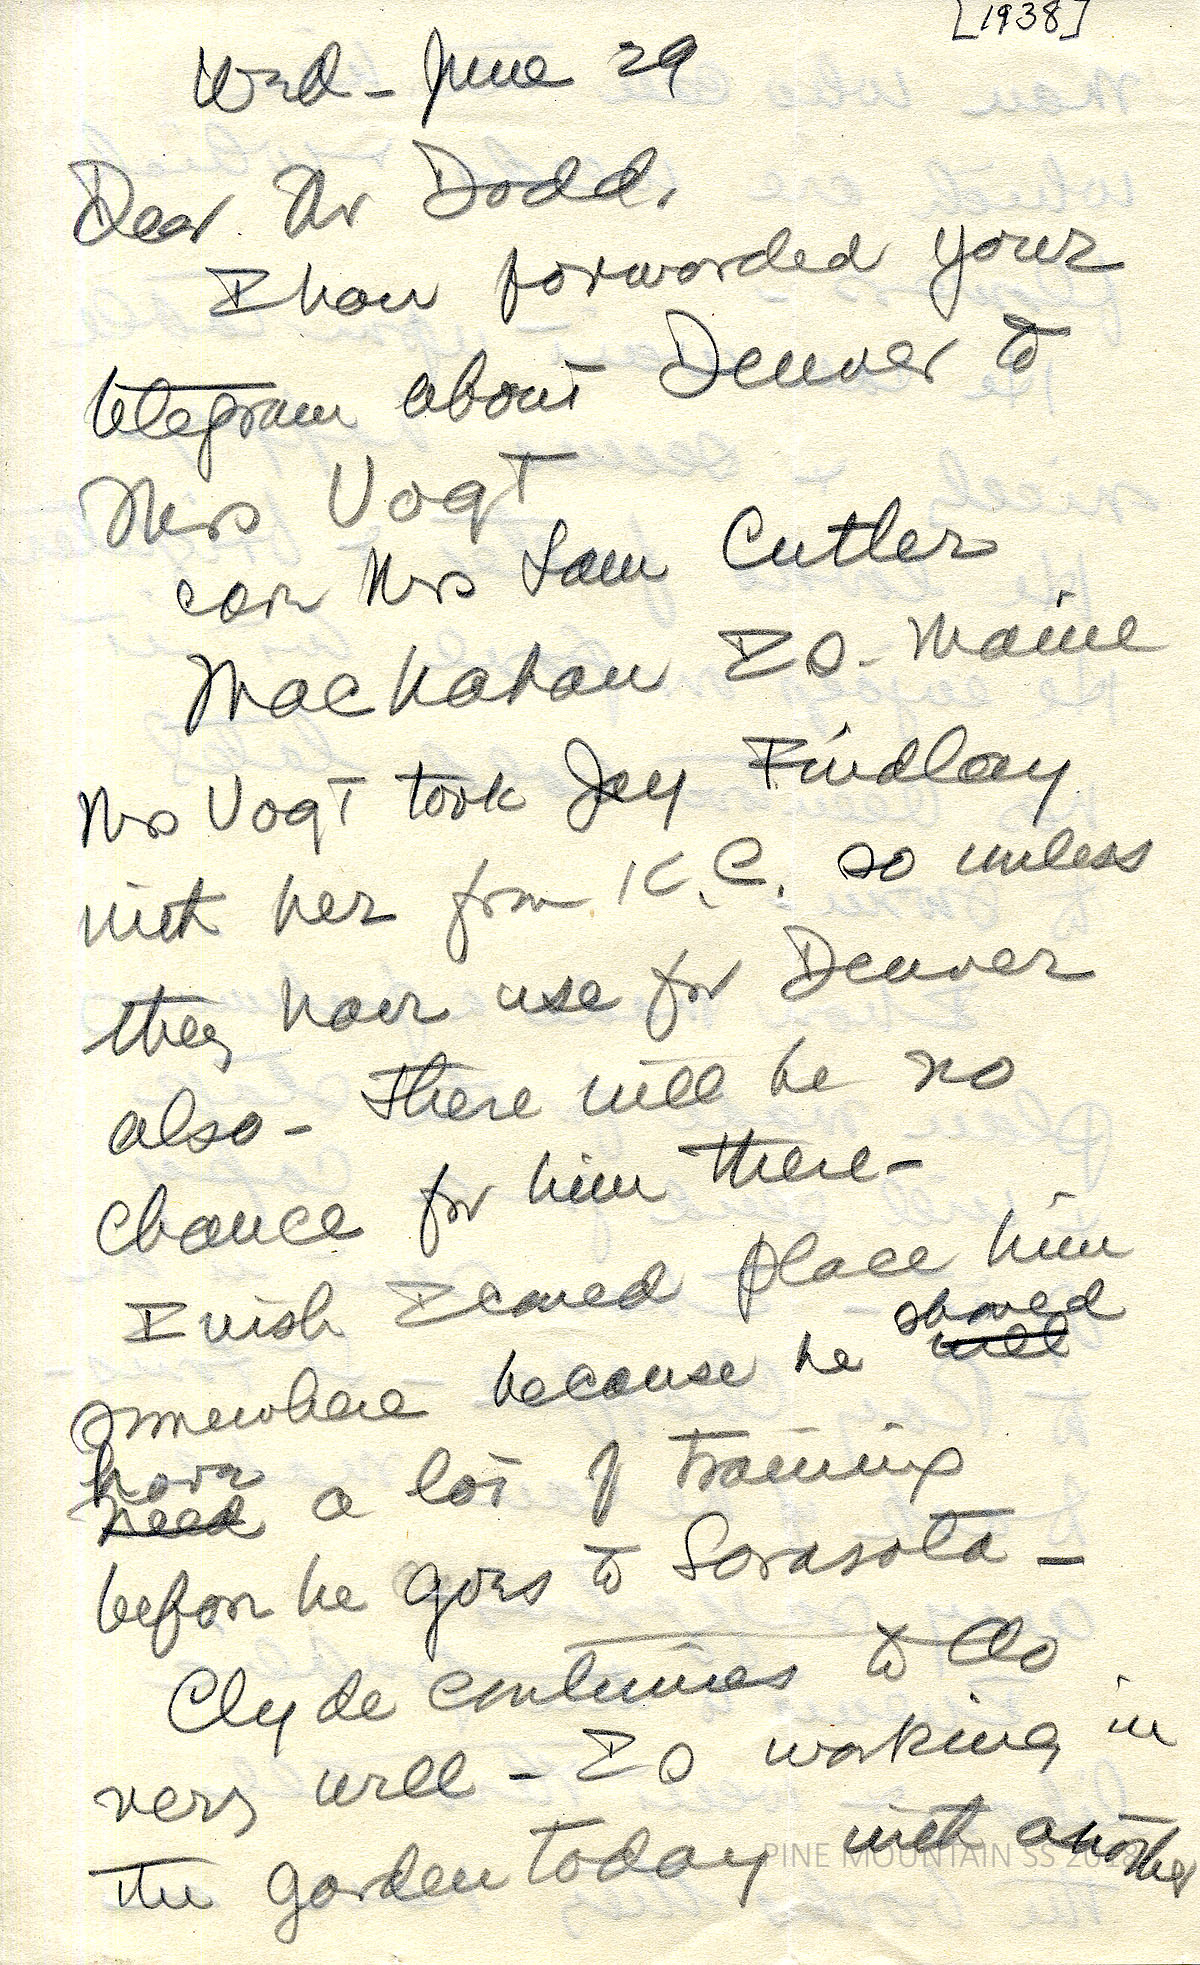 [1938]
Wed - June 29
Dear Mr Dodd,
I have forwarded your
telegram about Denver to
Mrs Vogt
care Mrs Sam Cutler
Machahan Is. Maine
Mrs Vogt took Jay Findlay
with her from K.C. so unless
they have use for Denver
also - There will be no
chance for him there -
I wish I could place him
somewhere because he will should
need have a lot of training
before he goes to Sarasota -
Clyde continues to do
very well - Is working in
the garden today with another
PINE MOUNTAIN SS 2018